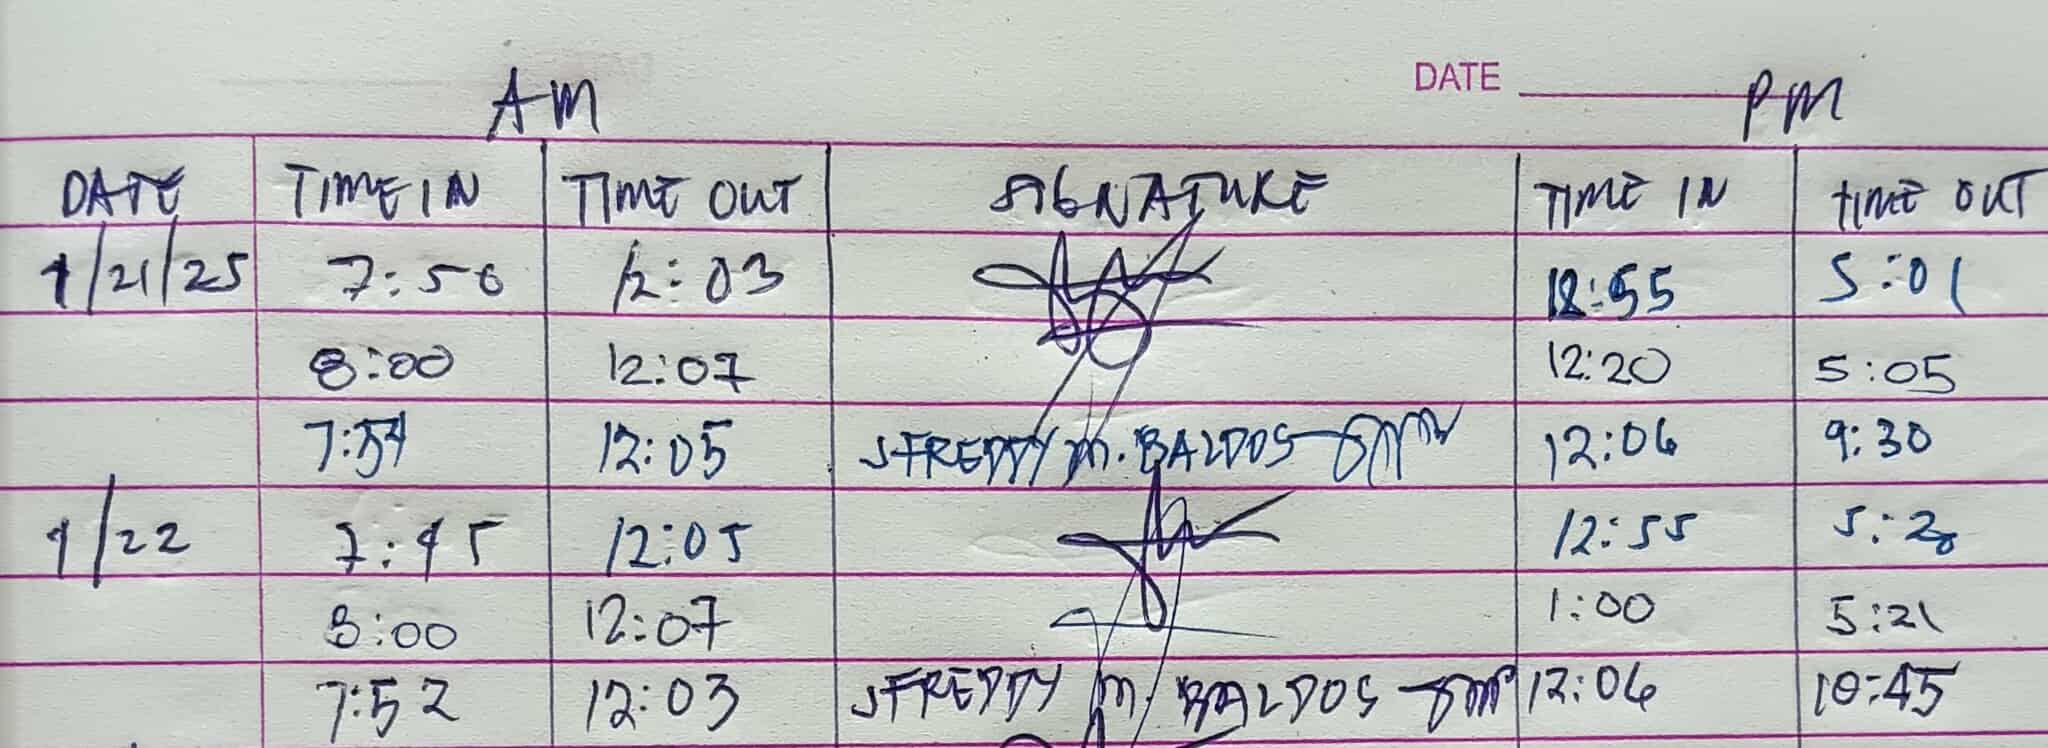 AM
DATE PM
DATE TIME IN TIME OUT SIGNATURE TIME IN TIME OUT
1/21/25 7:50 12:03 12:55 5:01
8:00 12:07 12:20 5:05
7:54 12:05 JFREDDY M. BALDOS 12:06 9:30
1/22 7:45 12:05 12:55 5:20
8:00 12:07 1:00 5:21
7:52 12:03 JFREDDY M. BALDOS 12:06 10:45